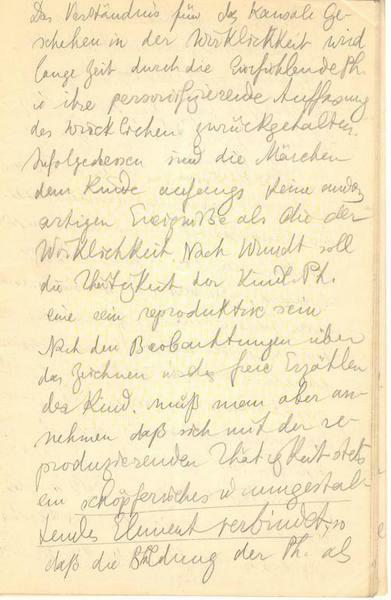 Das Verständnis für das kausale Ge-
schehen in der Wirklichkeit wird
lange Zeit durch die Einfühlende Ph.
u ihre personifizierende Auffassung
des Wirklichen zurückgehalten.
Infolgedessen sind die Märchen
dem Kinde anfangs keine andren
artigen Ereigniße als die der
Wirklichkeit. Nach Wundt soll
die Thätigkeit der Kindl. Ph.
eine rein reproduktive sein
Nach den Beobachtungen über
das Zeichnen u das freie Erzählen
des Kind. muß man aber an-
nehmen daß sich mit der re-
produzierenden Thätigkeit stets
ein schöpferisches u umgestal-
tendes Element verbindet, so
daß die Bildung der Ph. als